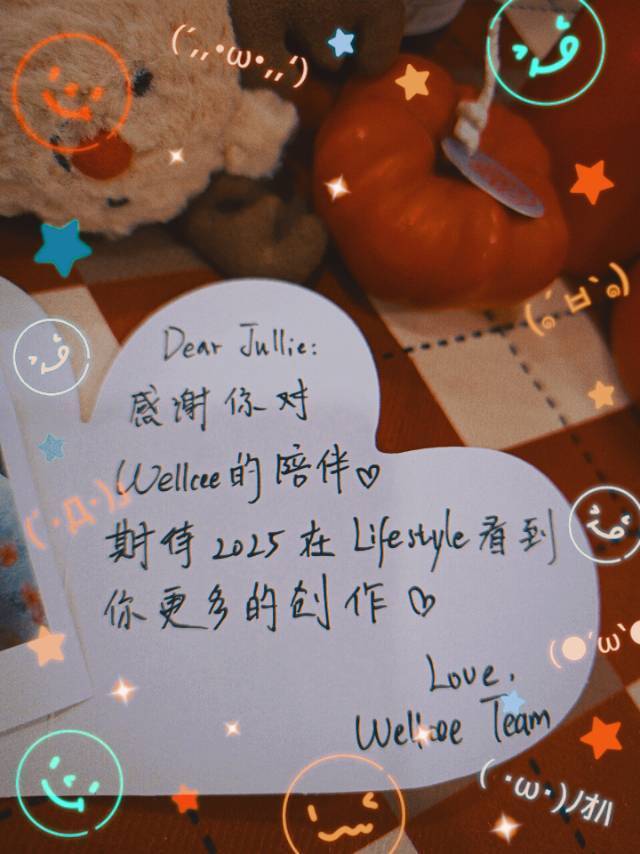 (´,,•ω•,,`)
Dear Jullie:
感谢你对
Wellcee的陪伴♡
期待 2025 在 Lifestyle 看到
你更多的创作 ♡
Love,
Wellcee Team
(·ω·)ﾉｵﾊ